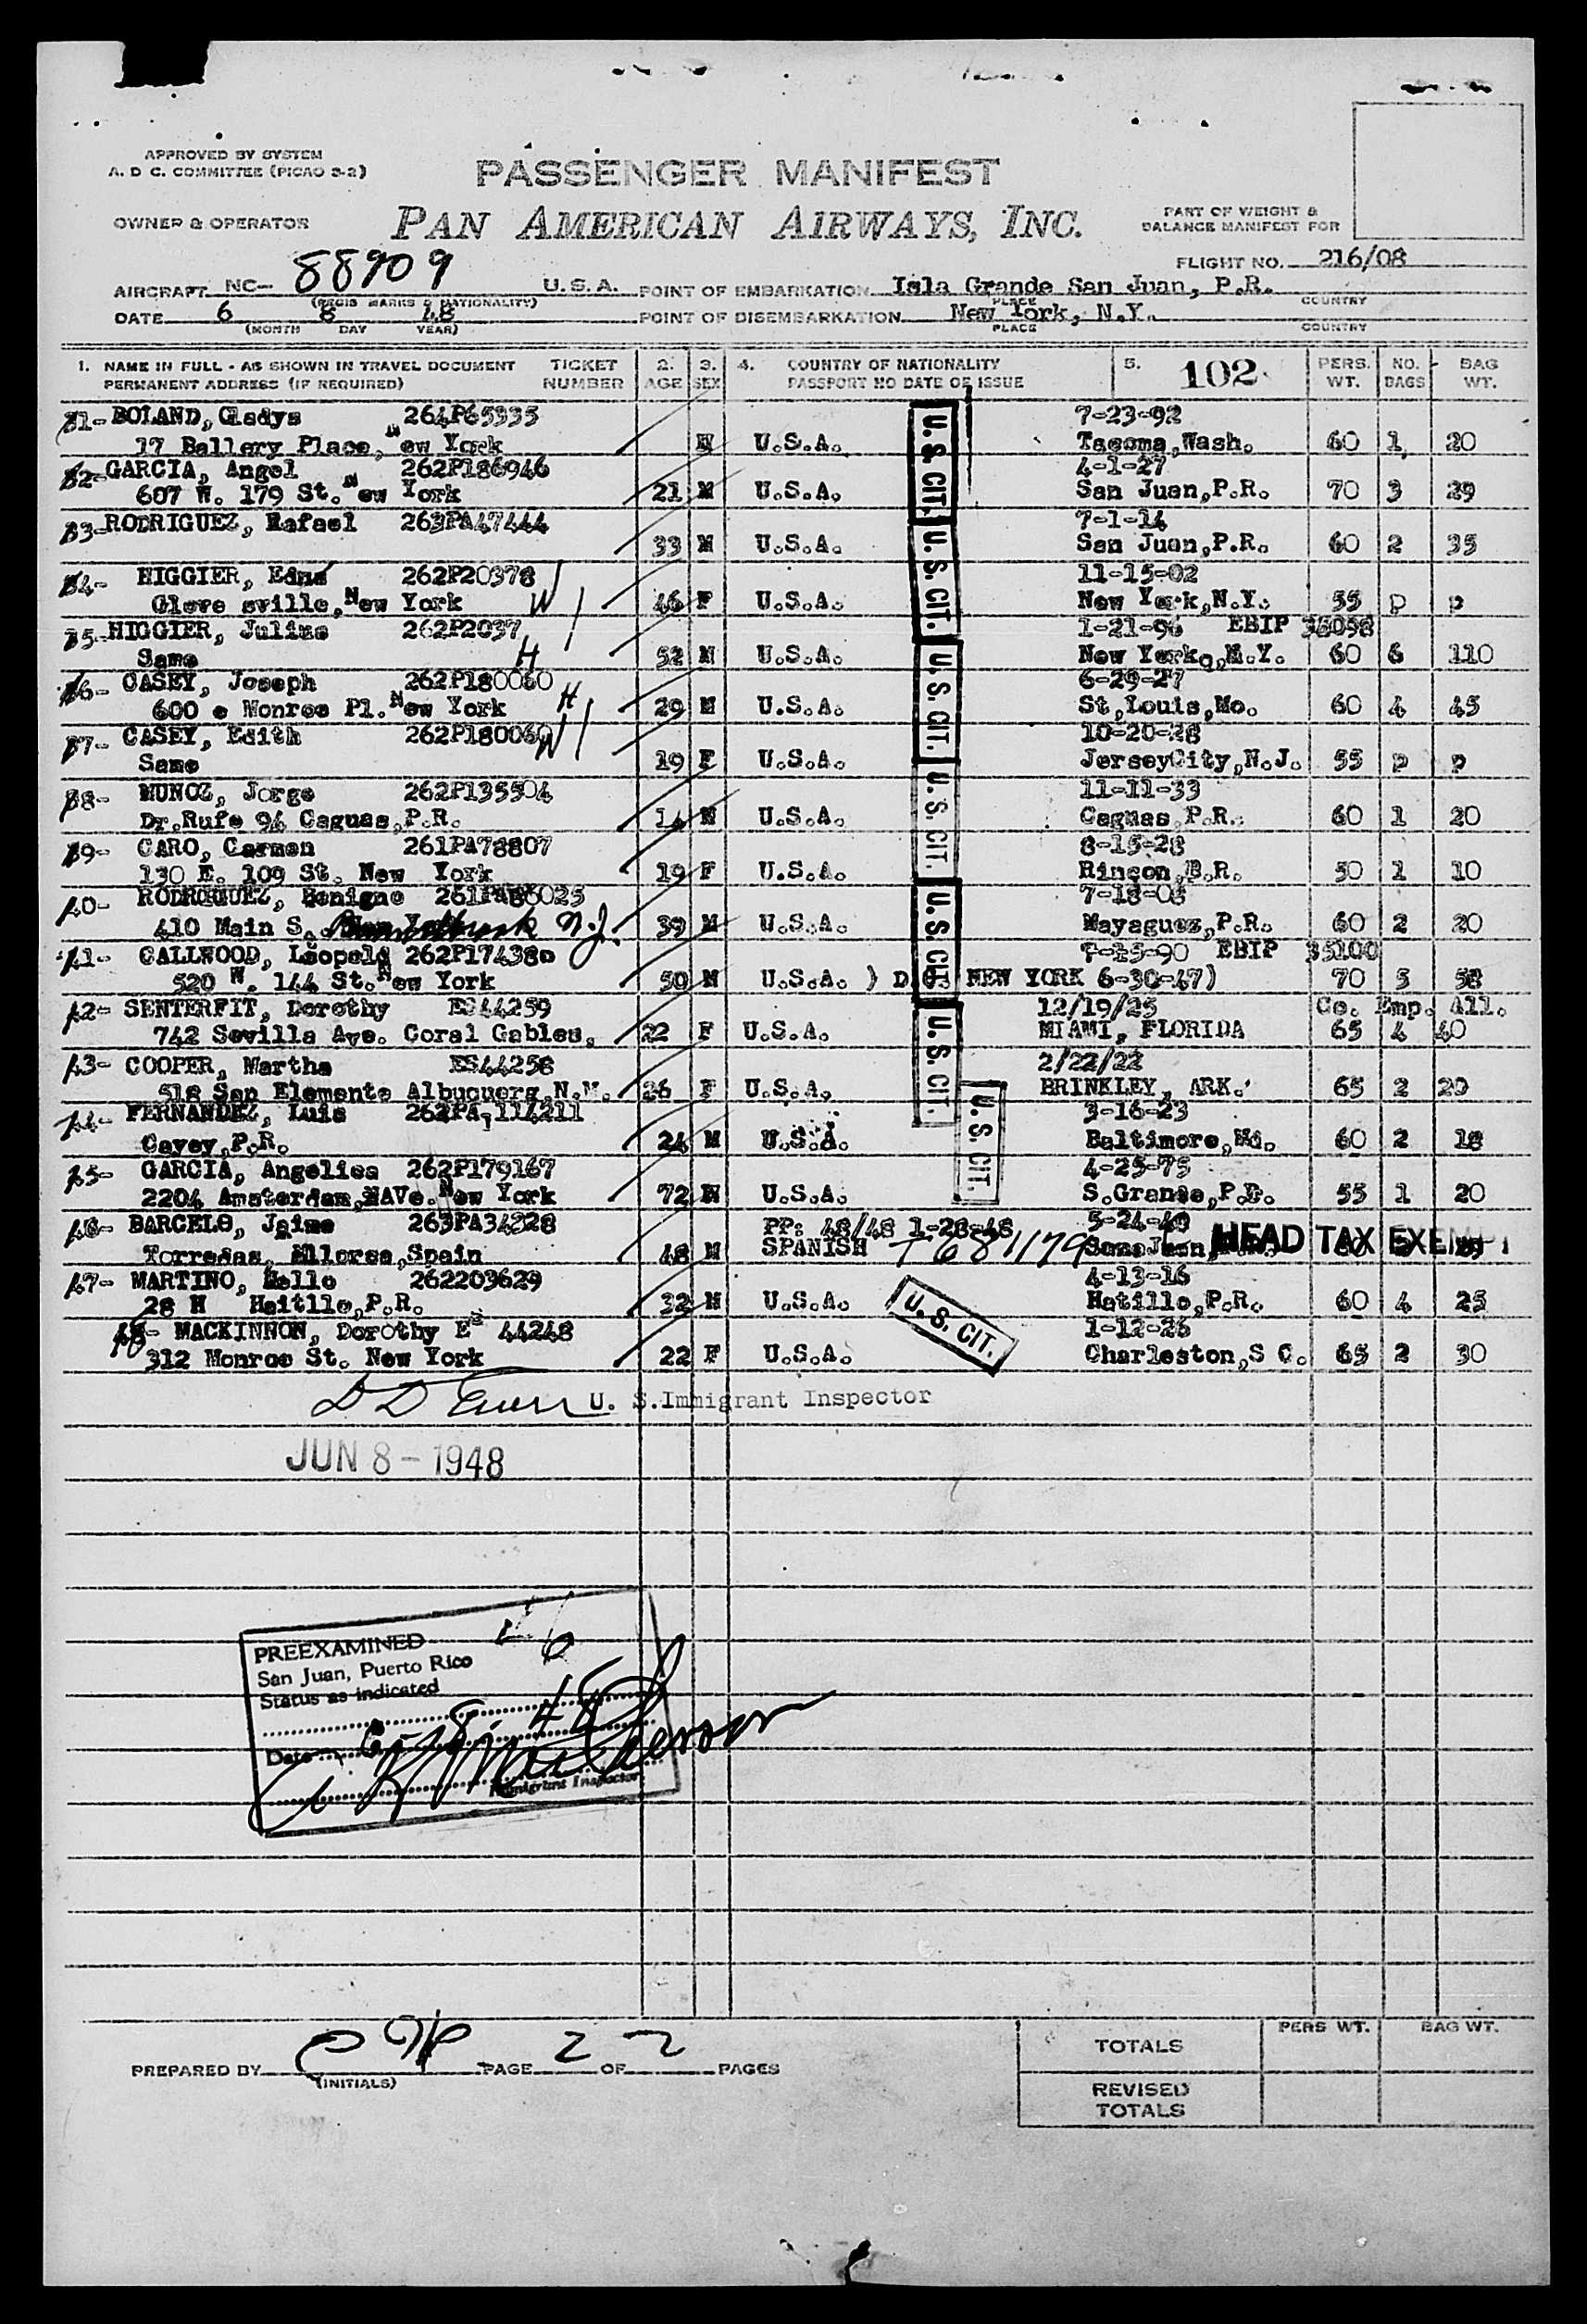 APPROVED BY SYSTEM
A. D C. COMMITTEE (PICAO 3-2)
PASSENGER MANIFEST
OWNER & OPERATOR
PAN AMERICAN AIRWAYS, INC.
PART OF WEIGHT &
BALANCE MANIFEST FOR
FLIGHT NO. 216/08
AIRCRAFT NC- 88909 U.S.A. POINT OF EMBARKATION Isla Grande San Juan, P.R.
(REGIS MARKS & NATIONALITY) PLACE COUNTRY
DATE 6 8 48 POINT OF DISEMBARKATION New York, N.Y.
(MONTH DAY YEAR) PLACE COUNTRY
1. NAME IN FULL - AS SHOWN IN TRAVEL DOCUMENT TICKET 2. 3. 4. COUNTRY OF NATIONALITY 5. 102 PERS. NO. BAG
PERMANENT ADDRESS (IF REQUIRED) NUMBER AGE SEX PASSPORT NO DATE OF ISSUE WT. BAGS WT.
31- BOLAND, Gladys 264P65335 7-23-92
17 Battery Place, New York U.S.A. Tacoma, Wash. 60 1 20
32- GARCIA, Angel 262P186946 4-1-27
607 W. 179 St. New York 21 M U.S.A. San Juan,P.R. 70 3 29
33- RODRIGUEZ, Rafael 263PA47444 7-1-14
33 M U.S.A. San Juan,P.R. 60 2 35
34- HIGGIER, Edna 262P20378 11-15-02
Glove sville, New York W 46 F U.S.A. New York,N.Y. 55 p p
35- HIGGIER, Julius 262P2037 1-21-96 EBIP 35098
Same H 52 M U.S.A. New York, N.Y. 60 6 110
36- CASEY, Joseph 262P180060 6-29-27
600 e Monroe Pl. New York H 29 M U.S.A. St,Louis,Mo. 60 4 45
37- CASEY, Edith 262P180060 10-20-28
Same W 19 F U.S.A. JerseyCity,N.J. 55 p p
38- MUNOZ, Jorge 262P135504 11-11-33
Dr.Rufe 94 Caguas,P.R. 14 M U.S.A. Caguas,P.R. 60 1 20
39- CARO, Carmen 261PA78807 8-15-28
130 E. 109 St. New York 19 F U.S.A. Rincon,P.R. 50 1 10
40- RODRIGUEZ, Benigno 7-18-08
410 Main S. N.J. 39 M U.S.A. Mayaguez,P.R. 60 2 20
41- CALLWOOD, Leopold 262P17438 7-15-90 EBIP 35100
520 W. 144 St. New York 50 M U.S.A. ) NEW YORK 6-30-47) 70 5 58
42- SENTERFIT, Dorothy ES44259 12/19/25 Co. Emp. All.
742 Sevilla Ave. Coral Gables, 22 F U.S.A. MIAMI, FLORIDA 65 4 40
43- COOPER, Martha ES44258 2/22/22
518 San Elemente Albuquerq,N.M. 26 F U.S.A. BRINKLEY, ARK. 65 2 20
44- FERNANDEZ, Luis 262PA-114211 3-16-23
Cayey,P.R. 24 M U.S.A. Baltimore,Md. 60 2 18
45- GARCIA, Angelica 262P179167 4-25-75
2204 Amsterdam, AVe. New York 72 U.S.A. S.Grande,P.R. 55 1 20
46- BARCELO, Jaime 263PA34228 PP: 48/48 1-28-48
48 M SPANISH T681179 HEAD TAX EXEMPT
47- MARTINO, 262203629 4-13-16
28 H Haitllo,P.R. 32 M U.S.A. Hatillo,P.R. 60 4 25
48- MACKINNON, Dorothy ES 44248 1-12-26
312 Monroe St. New York 22 F U.S.A. Charleston,S C. 65 2 30
U. S. CIT.
U. S. CIT.
U. S. CIT.
U. S. CIT.
U. S. CIT.
U. S. CIT.
U. S. CIT.
U. S. CIT.
U. S.Immigrant Inspector
JUN 8 - 1948
PREEXAMINED
San Juan, Puerto Rico
Status as indicated
Date 6-8-48
Immigrant Inspector
PREPARED BY PAGE 2 OF 2 PAGES
(INITIALS)
PERS WT. BAG WT.
TOTALS
REVISED
TOTALS